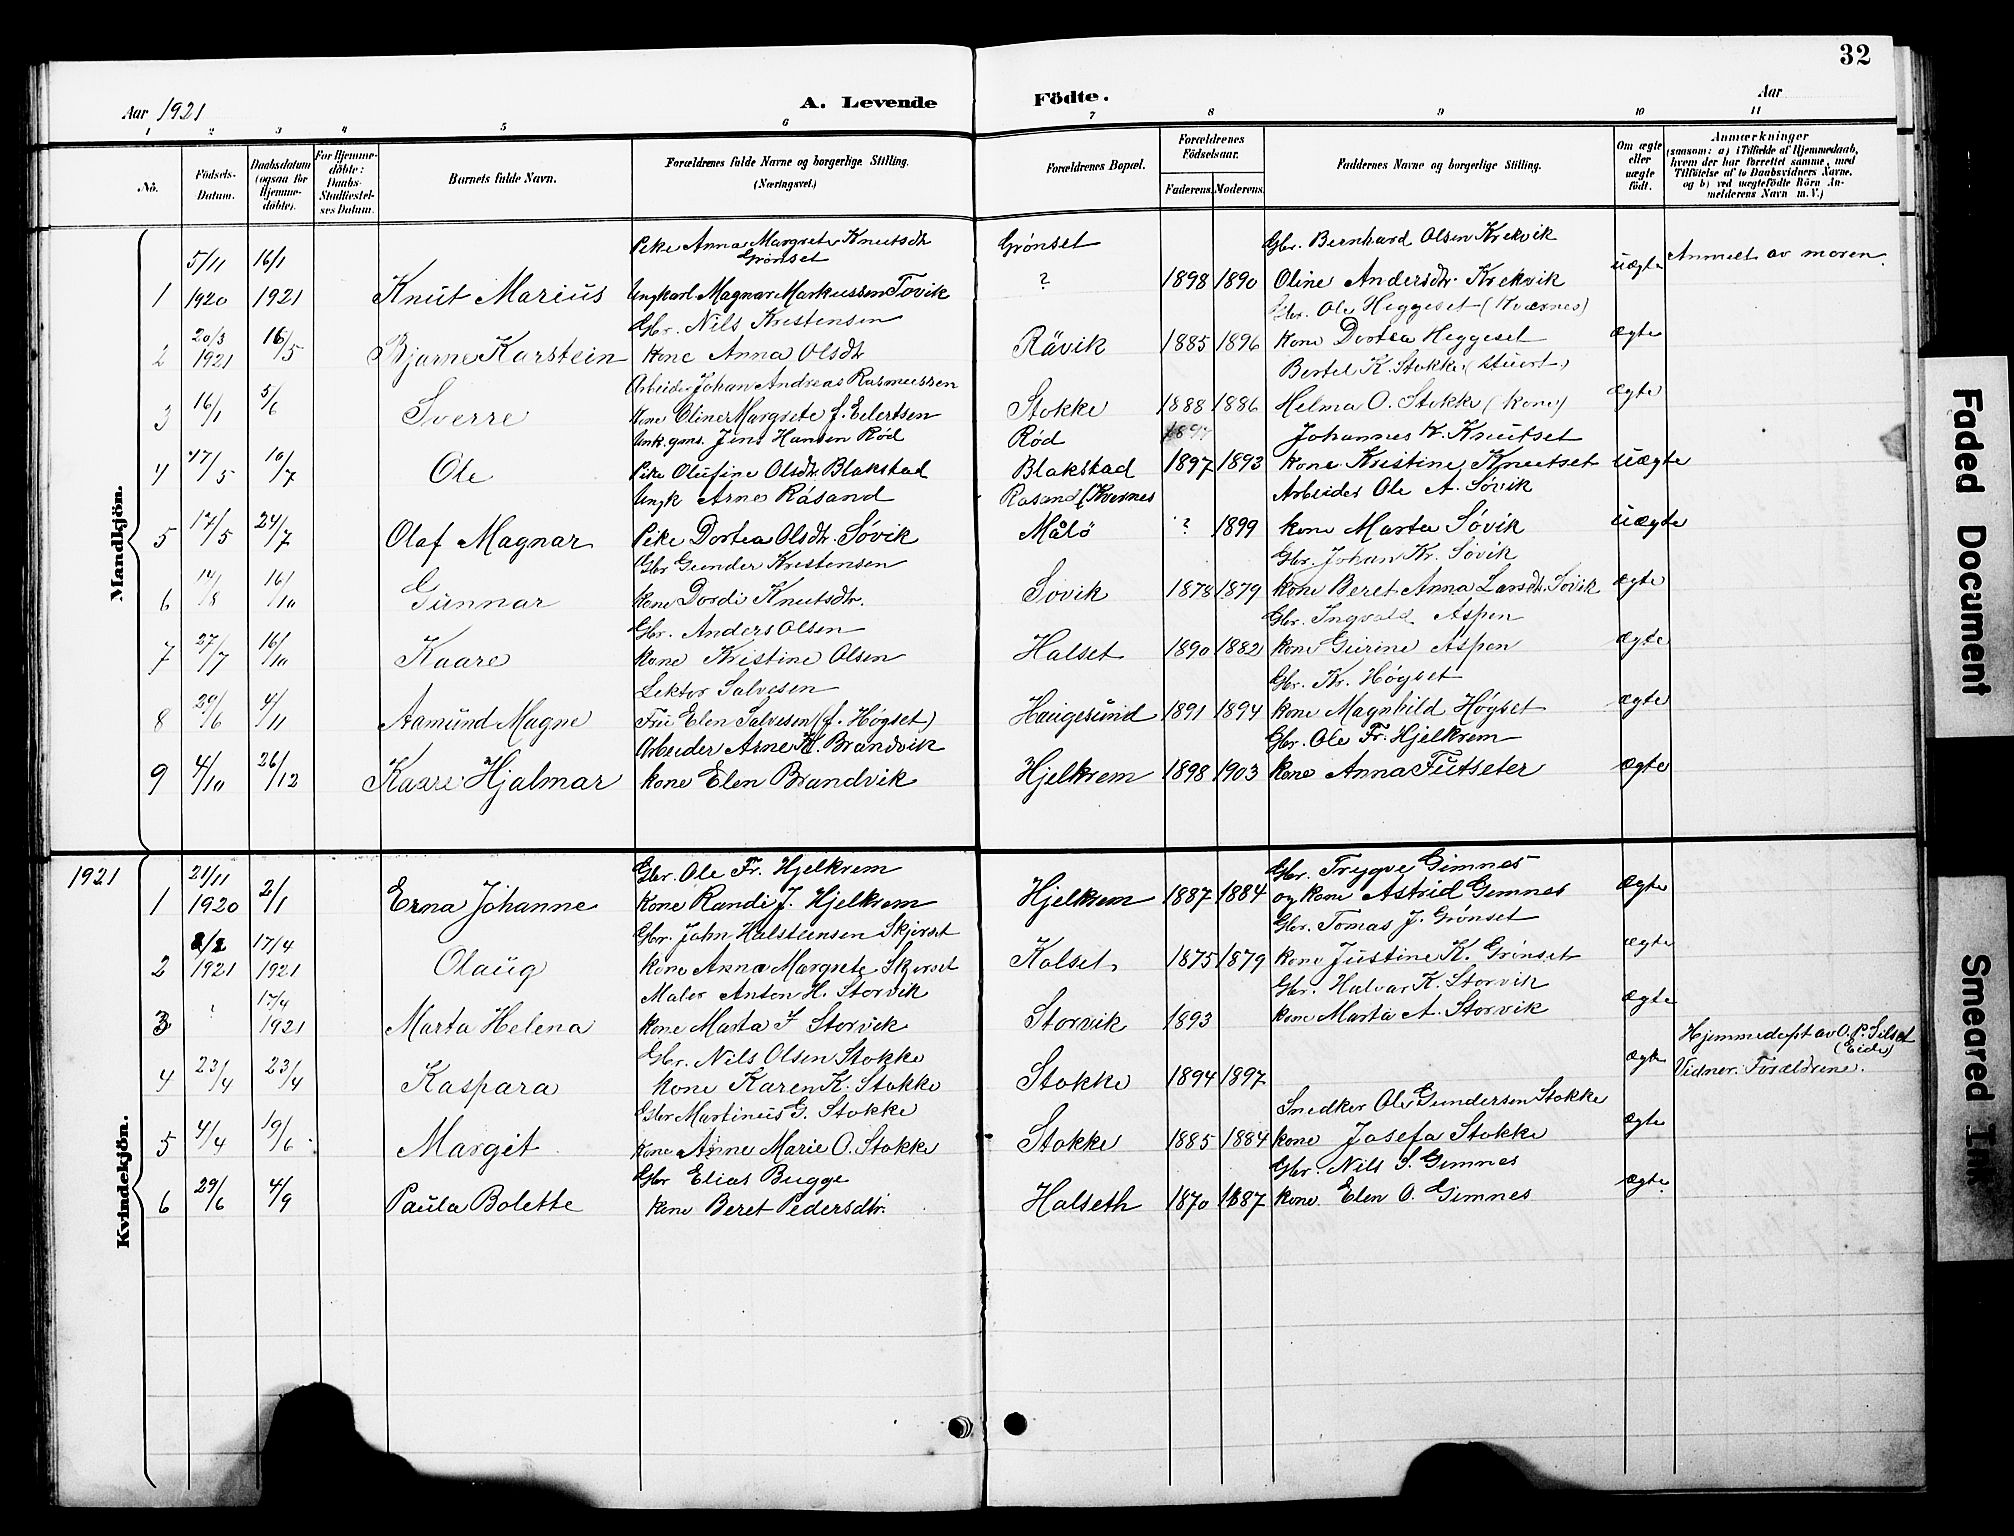 32
Aar 1921 A. Levende Födte. Aar
1 2 3 4 5 6 7 8 9 10 11
No. Födsels-Datum. Daabsdatum (ogsaa for Hjemme-döbte). For Hjemme-döbte: Daabs-Stadfæstel-ses Datum. Barnets fulde Navn. Forældrenes fulde Navne og borgerlige Stilling. (Næringsvei.) Forældrenes Bopæl. Forældrenes Födselsaar. Faderens. Moderens. Faddernes Navne og borgerlige Stilling. Om ægte eller uægte födt. Anmærkninger (saasom: a) i Tilfælde af Hjemmedaab, hvem der har forrettet samme, med Tilföielse af to Daabsvidners Navne, og b) ved uægtefödte Börn An-melderens Navn m. V.)
Mandkjön.
5/11 16/1 Pike Anna Margrete Knutsdtr Grönset Grönset Gbr. Bernhard Olsen Krekvik uægte Anmelt av moren.
1 1920 1921 Knut Marius Ungkarl Magnar Markussen Tovik ? 1898 1890 Oline Andersdtr. Krekvik
20/3 16/5 Gbr. Nils Kristensen Gbr. Ole Heggeset (Kvernes)
2 1921 Bjarne Karstein kone Anna Olsdtr Råvik 1885 1896 kone Dortea Heggeset ægte
Arbeider Johan Andreas Rasmussen Bertel K. Stokke (stuert)
3 16/1 5/6 Sverre kone Oline Margrete f. Eilertsen Stokke 1888 1886 Helma O. Stokke (kone) ægte
Unk. gms. Jens Hansen Rød Rød 1897 Johannes K. Knutset
4 17/5 10/7 Ole Pike Olufine Olsdtr. Blakstad Blakstad 1897 1893 kone Kristine Knutset uægte
Ungk Arne Råsand Rasand (Kvernes Arbeider Ole A. Søvik
5 17/5 24/7 Olaf Magnar Pike Dortea Olsdtr. Søvik Målø ? 1899 kone Marta Søvik uægte
Gbr Gunder Kristensen Gbr. Johan Kr. Søvik
6 12/8 16/10 Gunnar kone Dordi Knutsdtr. Søvik 1878 1879 kone Beret Anna Larsdtr. Søvik ægte
Gbr. Anders Olsen Gbr. Ingvald Aspen
7 27/7 16/10 Kaare kone Kristine Olsen Halset 1890 1882 kone Gurine Aspen ægte
Lektor Salvesen Gbr. Kr. Høgset
8 20/6 4/11 Aamund Magne Frü Elen Salvesen (f. Høgset) Haugesund 1891 1894 kone Magnhild Høgset ægte
Arbeider Arne K. Brandvik Gbr. Ole Fr. Hjelkrem
9 4/10 26/12 Kaare Hjalmar kone Elen Brandvik Hjelkrem 1898 1903 kone Anna Futseter ægte
Kvindekjön.
1921 21/11 Gbr. Ole Fr. Hjelkrem Gbr. Trygve Gimnes
1 1920 2/1 Erna Johanne kone Randi J. Hjelkrem Hjelkrem 1887 1884 og kone Astrid Gimnes ægte
2/2 17/4 Gbr. John Halsteensen Skjerset Gbr. Tomas J. Grönset
2 1921 1921 Olaug kone Anna Margrete Skjerset Kalset 1875 1879 kone Justine K. Grönset ægte
17/4 Maler Anton H. Storvik Gbr. Halvar K. Storvik
3 ? 1921 Marta Helena kone Marta J Storvik Storvik 1893 kone Marta A. Storvik ægte
Gbr. Nils Olsen Stokke Hjemmedøpt av O. P. Silset (Eide)
4 23/4 23/4 Kaspara kone Karen K. Stokke Stokke 1894 1897 ægte Vidner: Forældrene.
Gbr Martinus G. Stokke Snedker Ole Gundersen Stokke
5 4/4 19/6 Margit kone Anne Marie O. Stokke Stokke 1885 1884 kone Josefa Stokke ægte
Gbr Elias Bugge Gbr. Nils S. Gimnes
6 29/6 4/9 Paula Bolette kone Beret Pedersdtr. Halseth 1870 1887 kone Elen O. Gimnes ægte
Faded Document
Smeared Ink